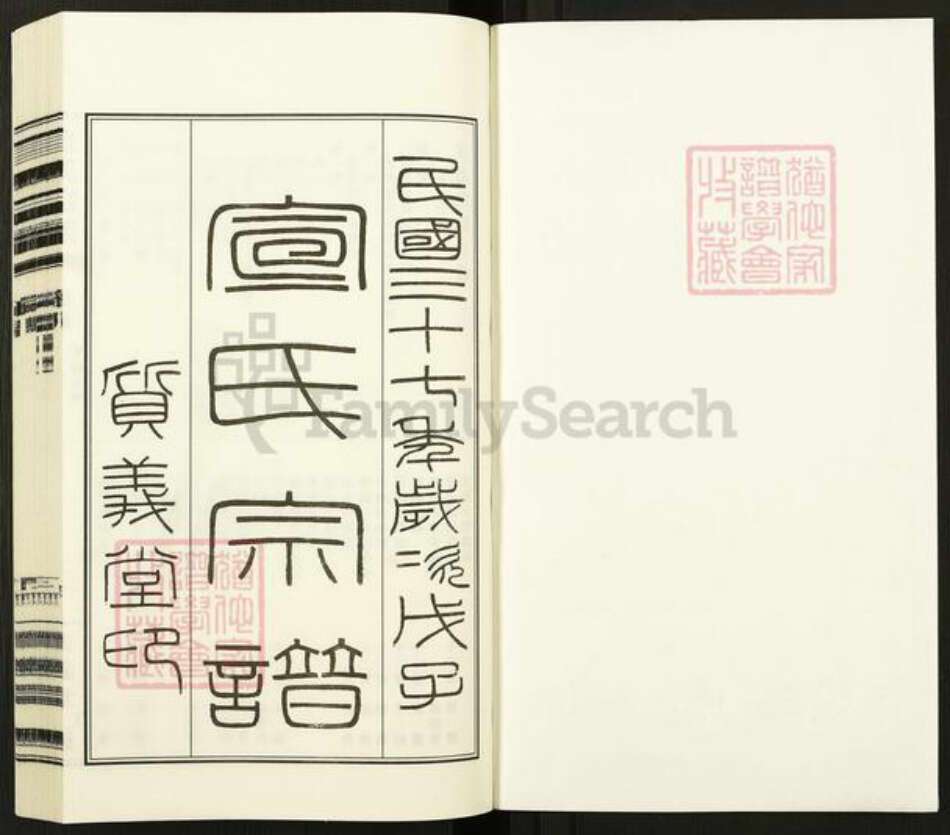 民國三十七年歲次戊子
宣氏宗譜
質義堂印
猶他家
譜學會
收藏
猶他家
譜學會
收藏
FamilySearch